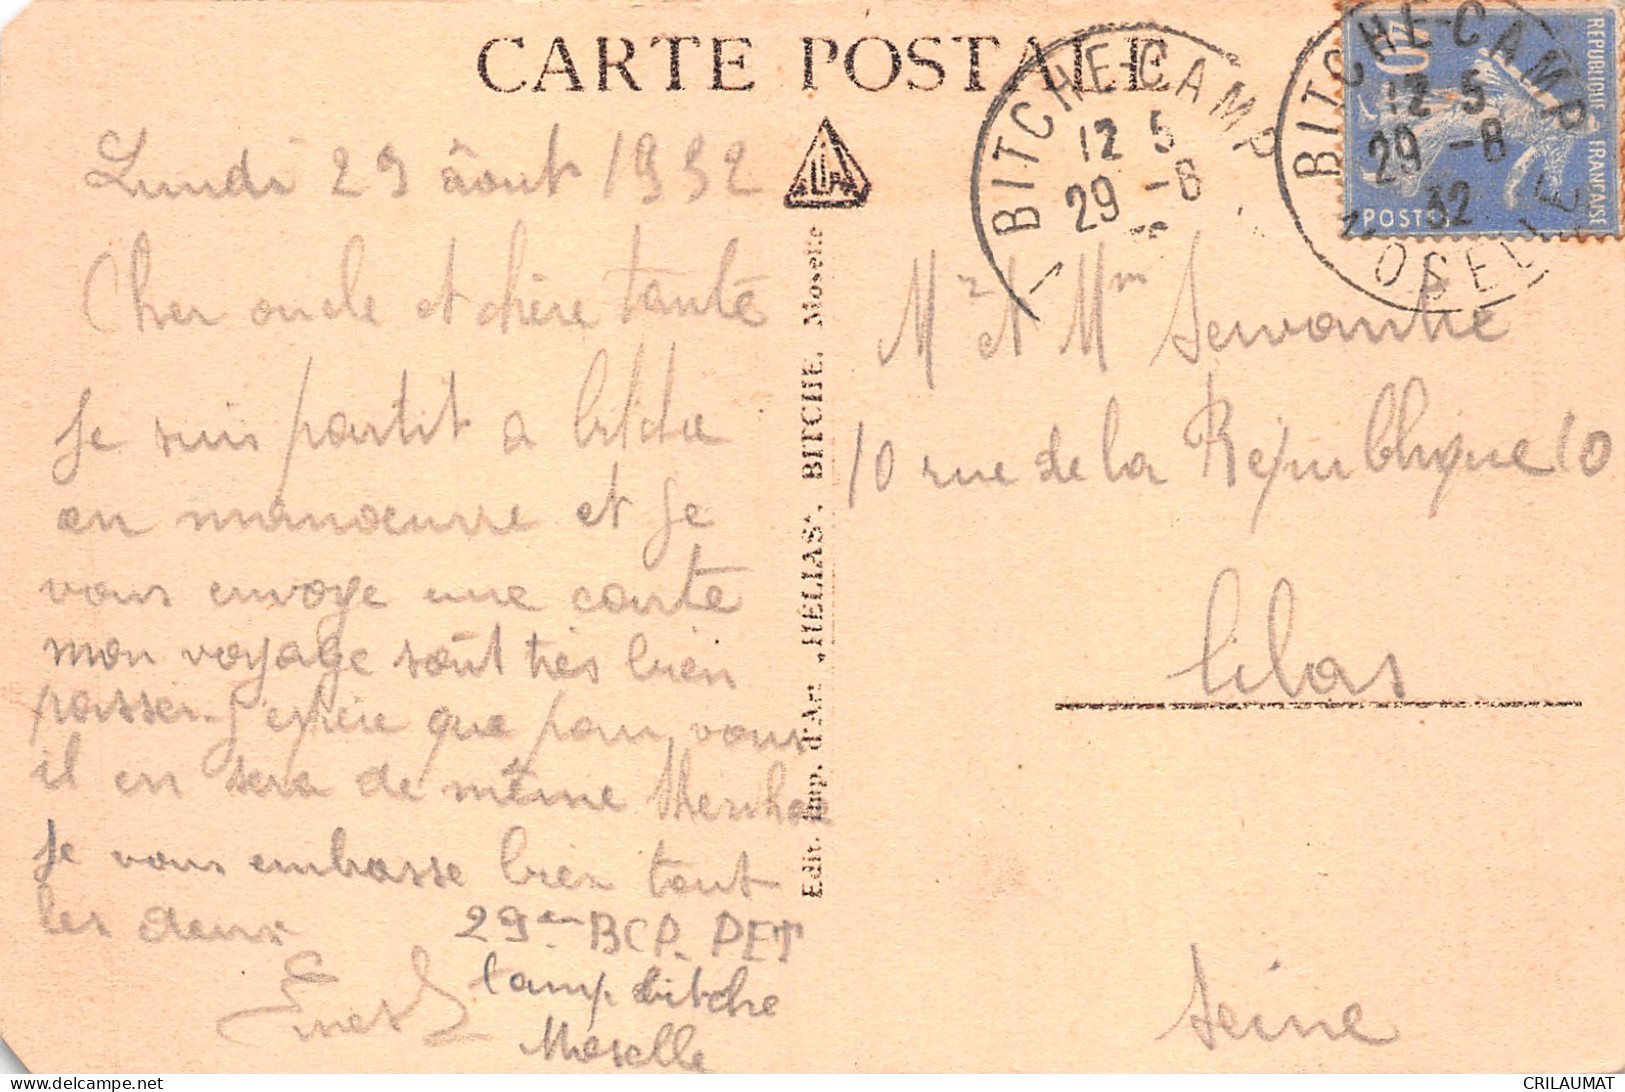 CARTE POSTALE
BITCHE-CAMP
12 5
29 -8
BITCHE-CAMP
12 5
29 -8
32
MOSELLE
REPUBLIQUE FRANÇAISE
40
POSTES
Lundi 29 âout 1932
Cher oncle et chère tante
Je suis partit a bitche
en manoeuvre et je
vous envoye une carte
mon voyage sôut très bien
passer. J'espère que pour vous
il en sera de mème
Je vous embrasse bien tout
les deux
29em BCP. PET
Camp bitche
Moselle
Ernest
Edit. Imp. d'Art „HÉLIAS", BITCHE, Moselle
Mr et Mm Servantie
10 rue de la République 10
lilas
Seine
CRILAUMAT